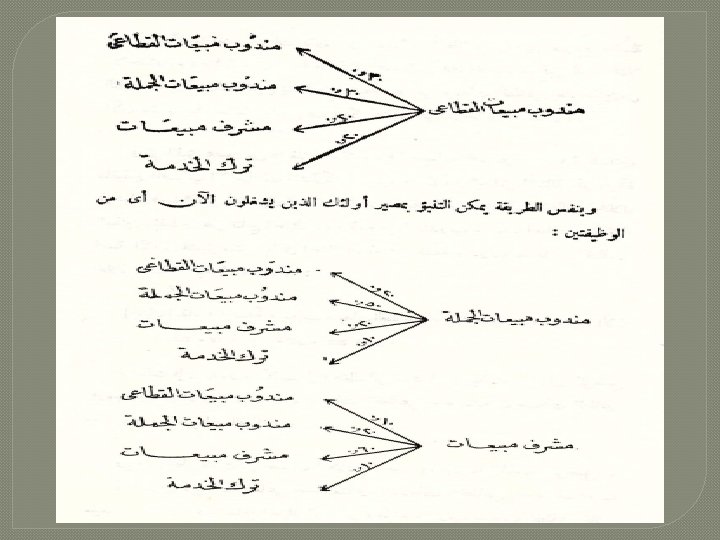 مندوب مبيعات القطاعى
مندوب مبيعات القطاعى
مندوب مبيعات الجملة
مشرف مبيعات
ترك الخدمة
وبنفس الطريقة يمكن التنبؤ بمصير أولئك الذين يشغلون الآن أى من
الوظيفتين :
مندوب مبيعات الجملة
مندوب مبيعات القطاعى
مندوب مبيعات الجملة
مشرف مبيعات
ترك الخدمة
مشرف مبيعات
مندوب مبيعات القطاعى
مندوب مبيعات الجملة
مشرف مبيعات
ترك الخدمة